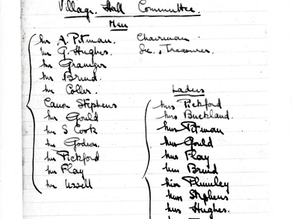 Village Hall Committee.
Men
Mr A. Pitman. Chairman
Mr G. Hughes. Sec. & Treasurer
Mr Granger
Mr Brind
Mr Coller.
Canon Stephens
Mr Gould
Mr S Cook
Mr Godwin.
Mr Pickford
Mr Flay
Mr
Ladies
Mrs Pickford
Mrs Buckland.
Mrs Pitman
Mrs Gould
Mrs Flay
Mrs Brind
Miss Plumley
Miss Stephens
Mrs Hughes